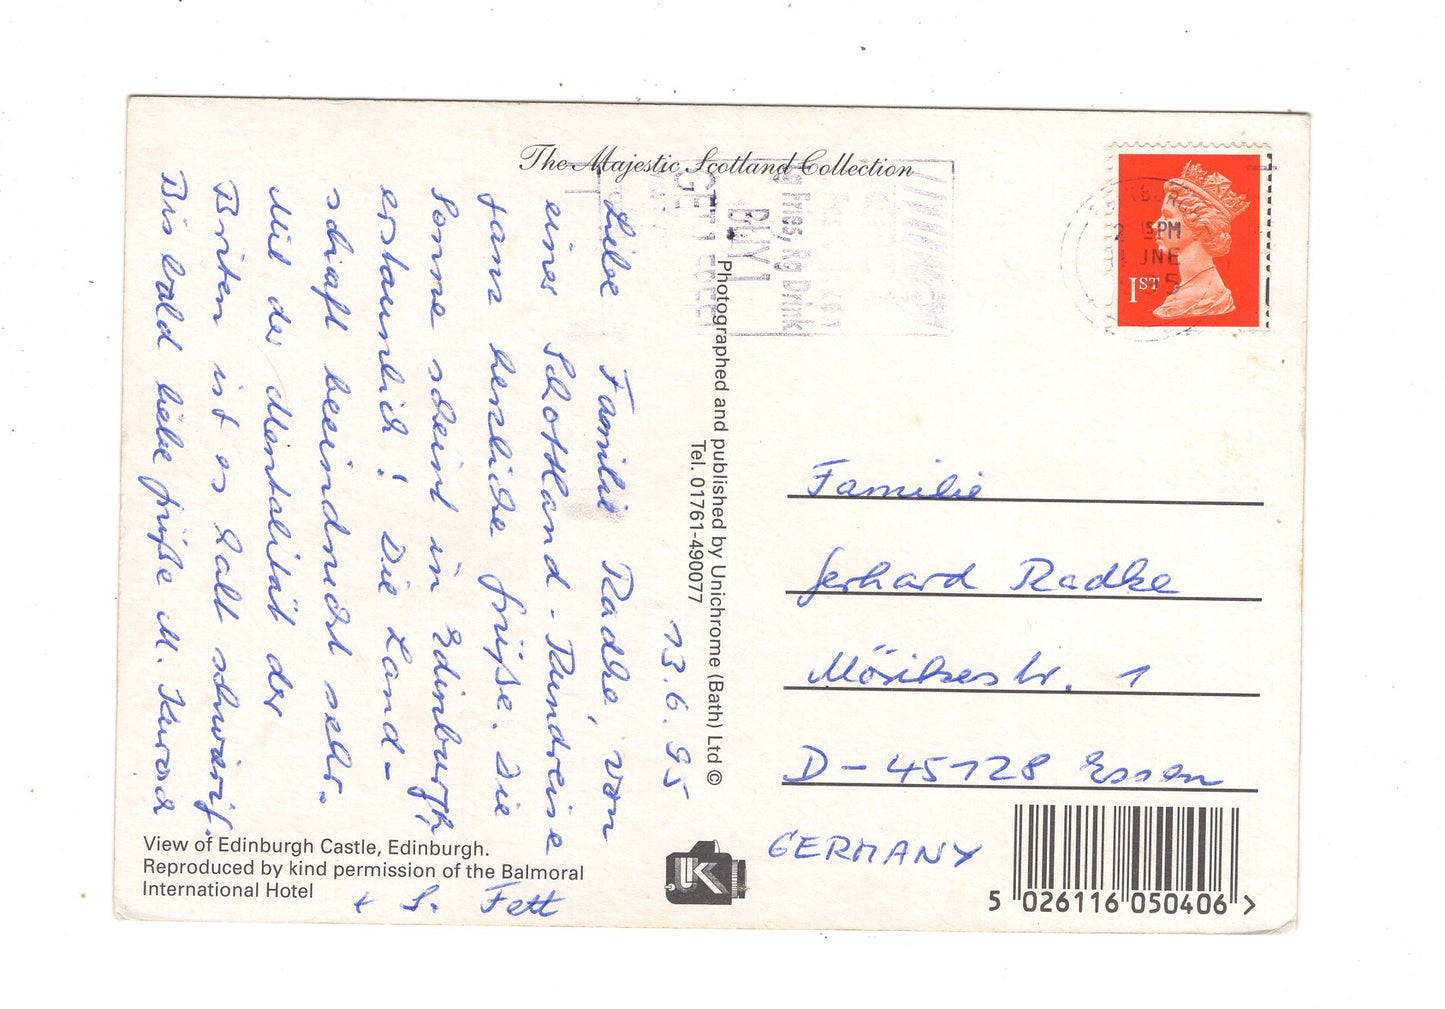 The Majestic Scotland Collection
13.6.95
Liebe Familie Radke, von
einer Schottland-Rundreise
ganz herzliche Grüße. Die
Sonne scheint in Edinburgh,
erstaunlich! Die Land-
schaft beeindruckt sehr.
Mit der Mentalität der
Briten ist es halt schwierig.
Bis bald liebe Grüße M.
+ S. Fett
View of Edinburgh Castle, Edinburgh.
Reproduced by kind permission of the Balmoral
International Hotel
Photographed and published by Unichrome (Bath) Ltd ©
Tel. 01761-490077
BUY 1
GET 1 FREE
Fries, Rg Drink
1ST
PM
JNE
Familie
Gerhard Radke
Mörikestr. 1
D-45128 Essen
GERMANY
UK
5 026116 050406 >